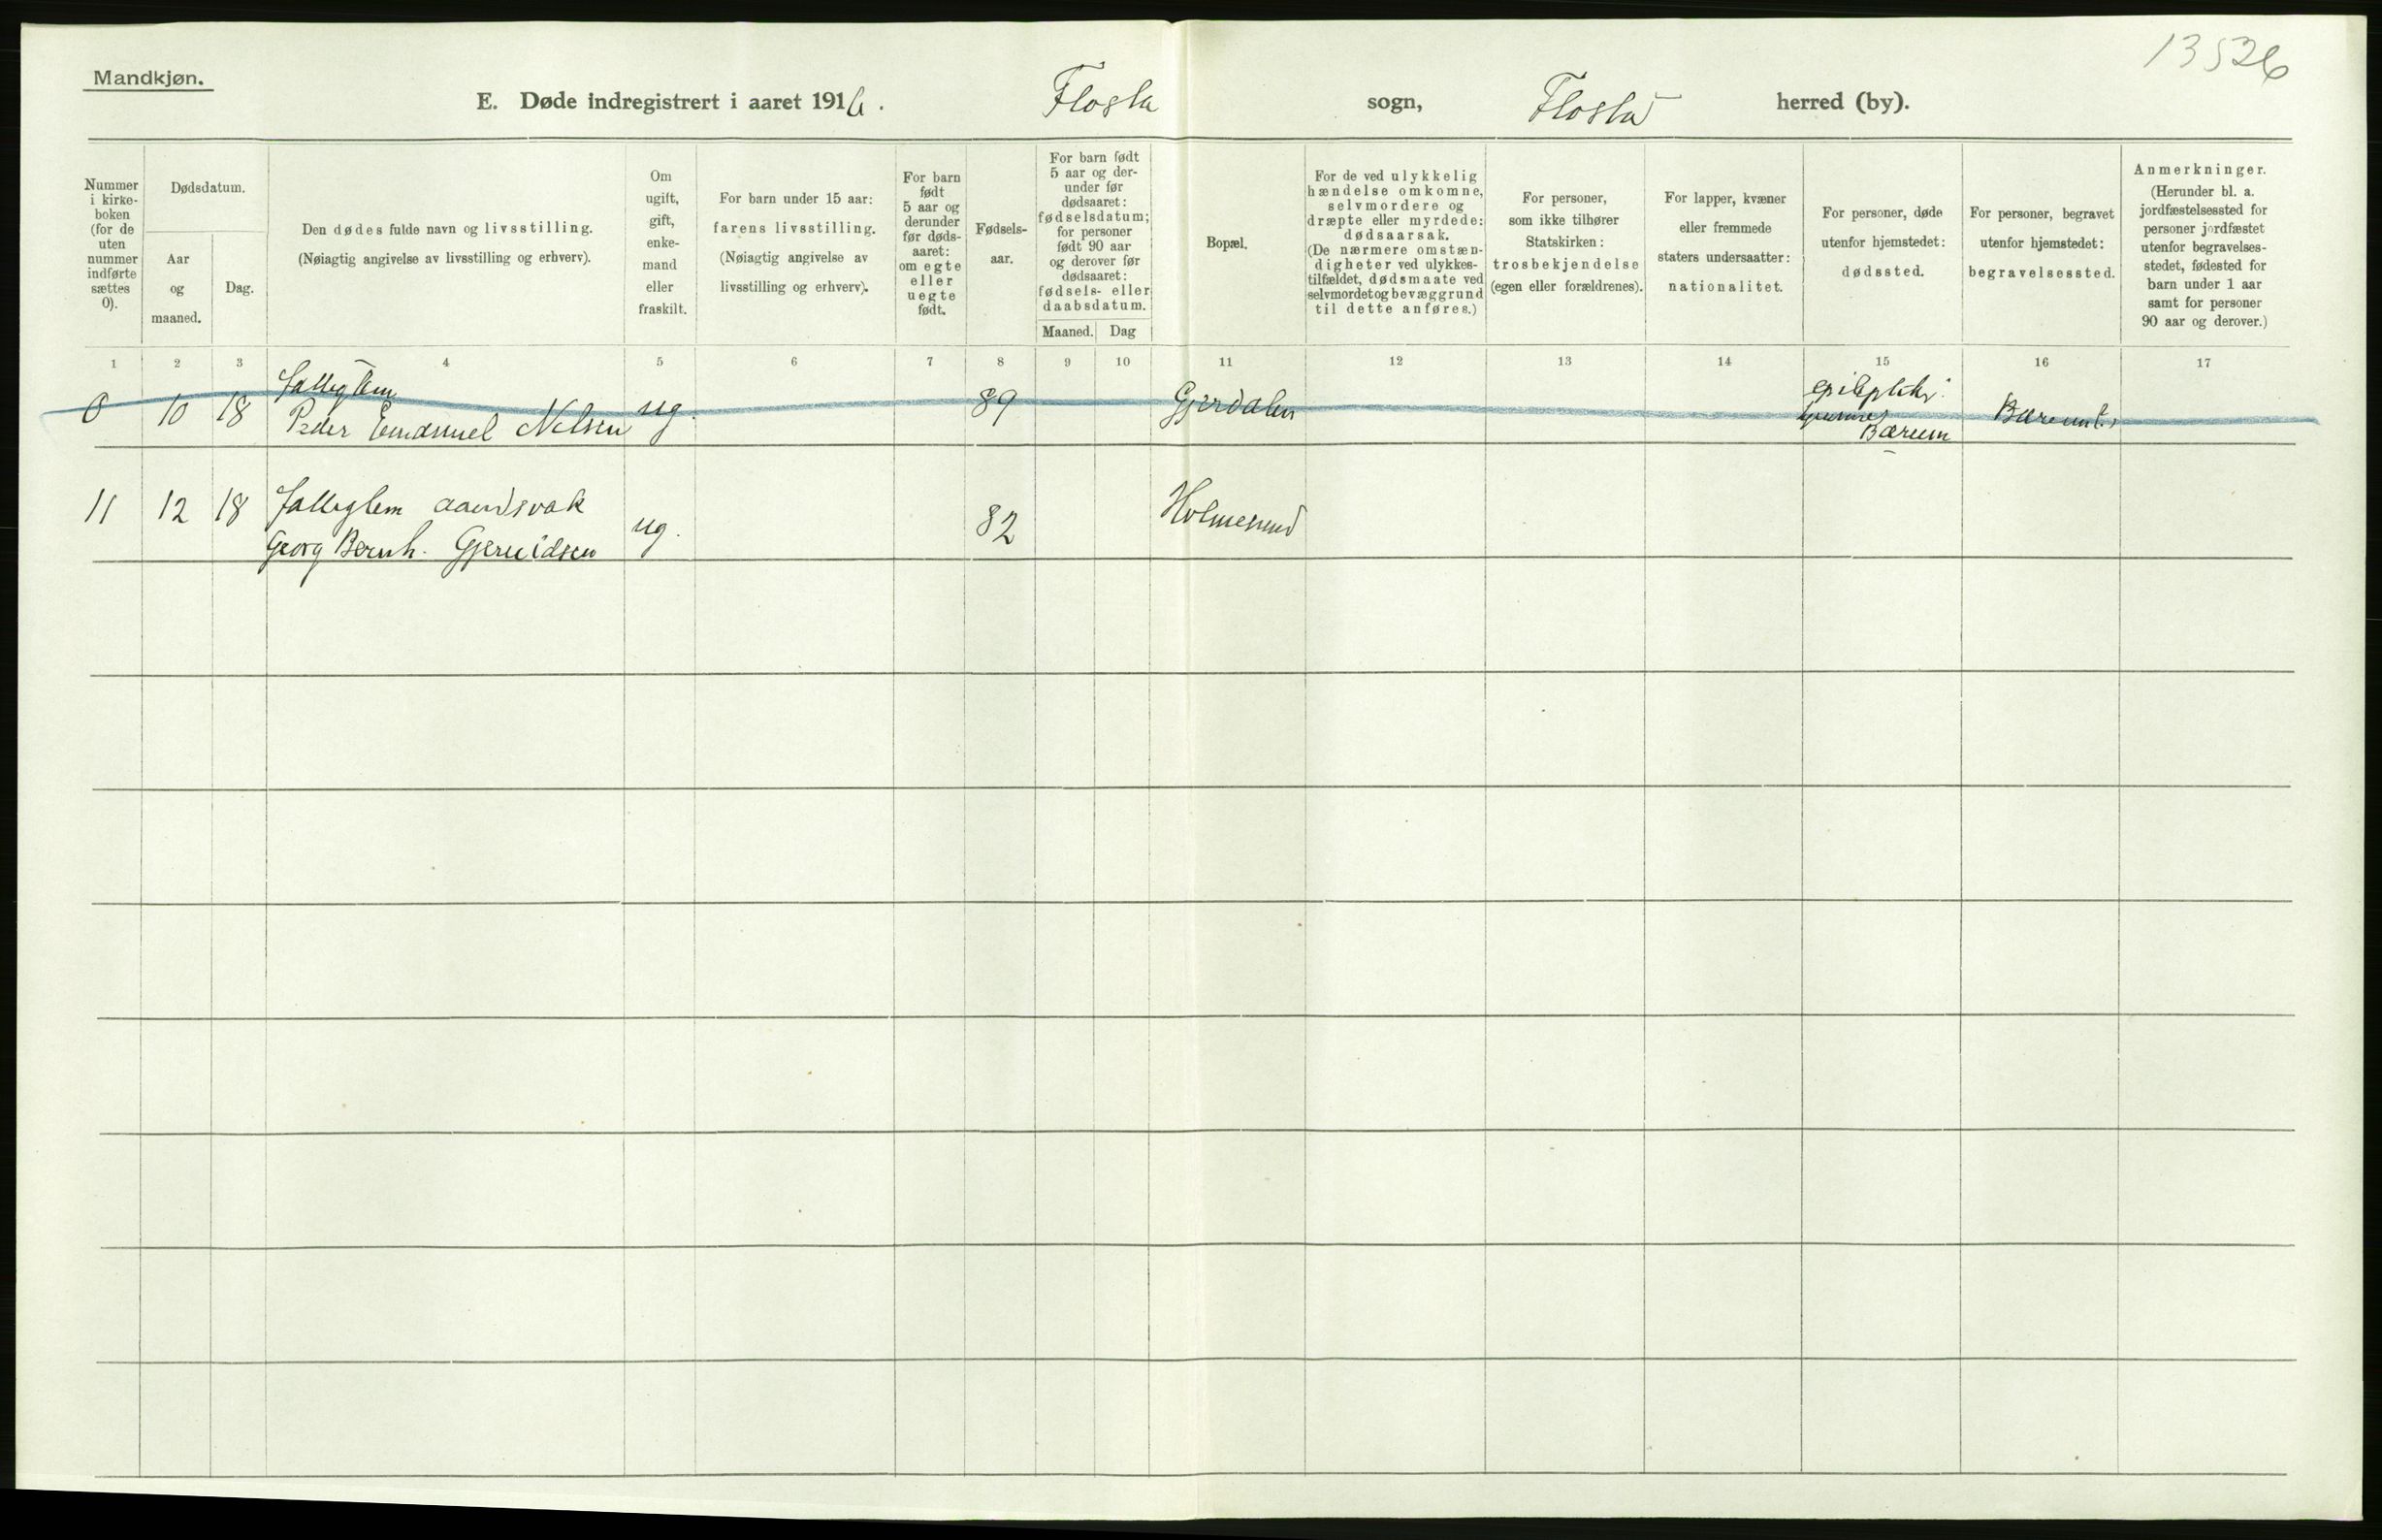 13526
Mandkjøn.
E. Døde indregistrert i aaret 1916. Flosta sogn, Flosta herred (by).
Nummer
i kirke-
boken
(for de
uten
nummer
indførte
sættes
0).
Dødsdatum.
Aar
og
maaned.
Dag.
Den dødes fulde navn og livsstilling.
(Nøiagtig angivelse av livsstilling og erhverv).
Om
ugift,
gift,
enke-
mand
eller
fraskilt.
For barn under 15 aar:
farens livsstilling.
(Nøiagtig angivelse av
livsstilling og erhverv).
For barn
født
5 aar og
derunder
før døds-
aaret:
om egte
eller
uegte
født.
Fødsels-
aar.
For barn født
5 aar og der-
under før
dødsaaret:
fødselsdatum;
for personer
født 90 aar
og derover før
dødsaaret:
fødsels- eller
daabsdatum.
Maaned. Dag
Bopæl.
For de ved ulykkelig
hændelse omkomne,
selvmordere og
dræpte eller myrdede:
dødsaarsak.
(De nærmere omstæn-
digheter ved ulykkes-
tilfældet, dødsmaate ved
selvmordet og bevæggrund
til dette anføres.)
For personer,
som ikke tilhører
Statskirken:
trosbekjendelse
(egen eller forældrenes).
For lapper, kvæner
eller fremmede
staters undersaatter:
nationalitet.
For personer, døde
utenfor hjemstedet:
dødssted.
For personer, begravet
utenfor hjemstedet:
begravelsessted.
Anmerkninger.
(Herunder bl. a.
jordfæstelsessted for
personer jordfæstet
utenfor begravelses-
stedet, fødested for
barn under 1 aar
samt for personer
90 aar og derover.)
1 2 3 4 5 6 7 8 9 10 11 12 13 14 15 16 17
fattiglem
0 10 18 Peder Emanuel Nelsen ug. 89 Gjerdalen
Bærum
11 12 18 fattiglem aandsvak
Georg Bernh. ug. 82 Holmesund